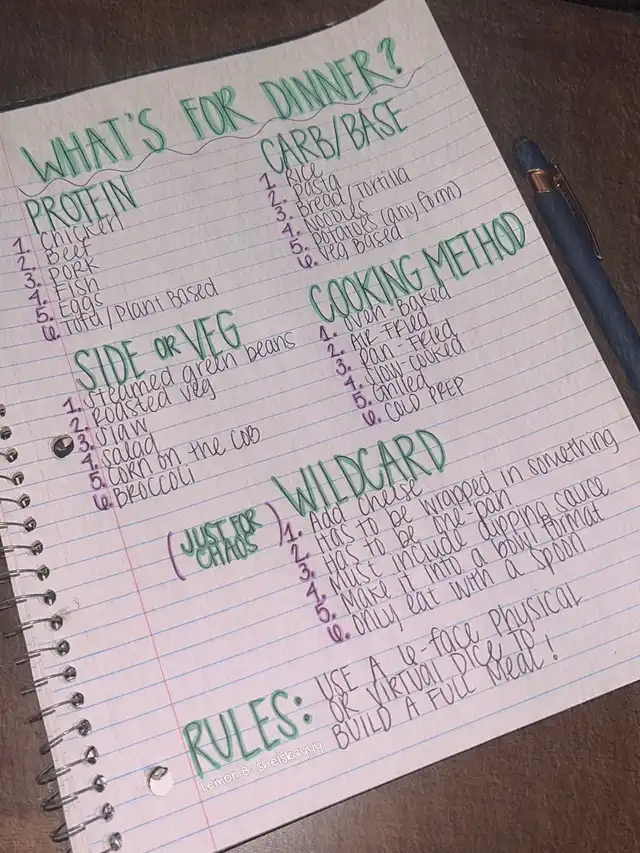 WHAT'S FOR DINNER?
PROTEIN
1. Chicken
2. Beef
3. Pork
4. Fish
5. Eggs
6. Tofu/Plant Based
CARB/BASE
1. Rice
2. Pasta
3. Bread/Tortilla
4. Noodles
5. Potatoes (any form)
6. Veg Based
SIDE OR VEG
1. Steamed green beans
2. Roasted veg
3. Slaw
4. Salad
5. Corn on the COB
6. BROCCOLI
COOKING METHOD
1. Oven-Baked
2. Air Fried
3. Pan-Fried
4. Slow cooked
5. Grilled
6. COLD PREP
(JUST FOR CHAOS)
WILDCARD
1. Add cheese
2. Has to be wrapped in something
3. Has to be one-pan
4. Must include dipping sauce
5. Make it into a bowl format
6. only eat with a spoon
RULES:
USE A 6-face physical
OR VIRTUAL DICE TO
BUILD A FULL MEAL!
Lemon B. shelskayyy